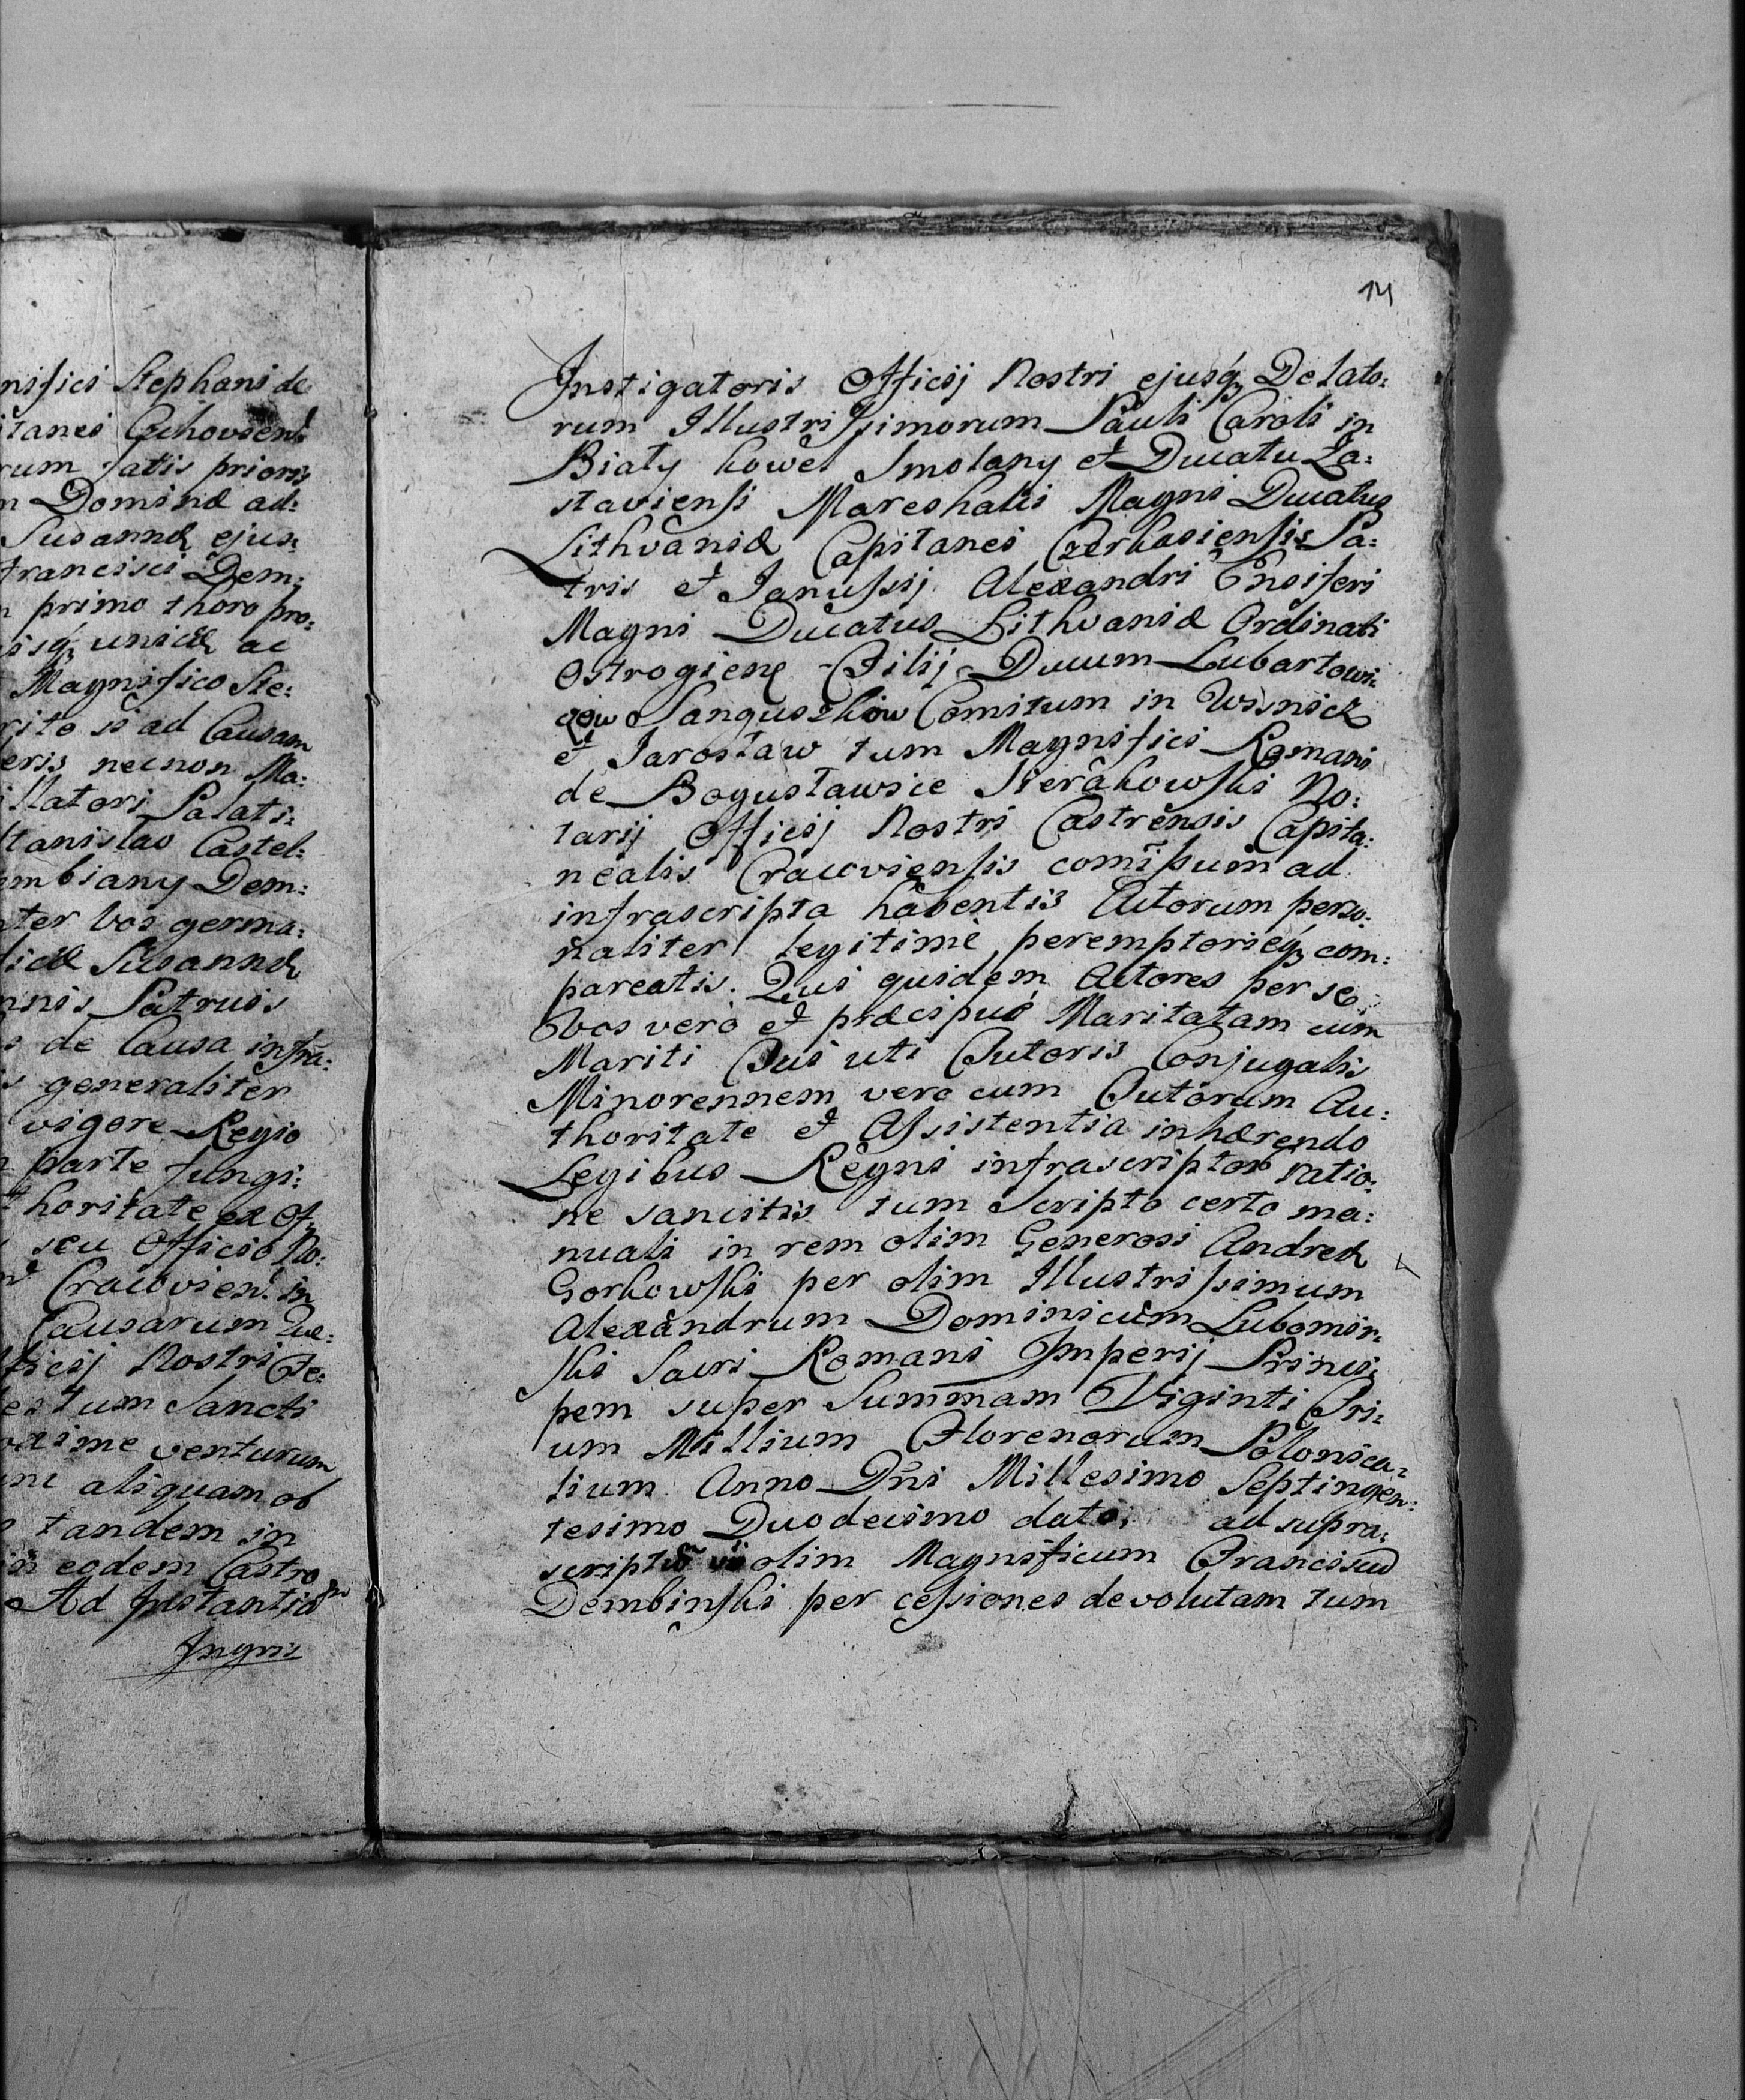 nifici Stephani de
itanei Czchoviens
rum fatis prioris
n Dominæ ad:
Susannæ ejus:
Francisci Dem:
n primo thoro pro:
isq, unicæ ac
Magnifico Ste:
rito is ad Causam
eris necnon Ma:
illatori Palati:
Stanislao Castel:
mbiany Dem:
nter vos germa:
ficæ Susannæ
nnis Patruis
s de Causa infra:
is generaliter
vigore Regio
n parte fungi:
thoritate ex Of,
seu Officio No:
Cracovien. in
Causarum Que:
fficij Nostri Fe:
estum Sancti
oxime venturum
ni aliquam ob
o tandem in
in eodem Castro
Ad Instantiam
Ingris
14
Instigatoris Officij Nostri ejusq, Delato:
rum Illustrissimorum Pauli Caroli in
Biały Kowel Smolany et Ducatu Za:
staviensi Mareshalci Magni Ducatus
Lithvaniæ Capitanei Czerkasiensis Pa:
tris et Janussij Alexandri Ensiferi
Magni Ducatus Lithvaniæ Ordinati
Ostrogiens Filij Ducum Lubartowi:
czow Sanguszkow Comitum in Wisnicz
et Jarosław tum Magnifici Romani
de Bogusławice Sierakowski No:
tarij Officij Nostri Castrensis Capita:
nealis Cracoviensis comissum ad
infrascripta habentis Actorum perso:
naliter legitime peremptorieq, com:
pareatis. Qui quidem Actores per se
Vos vero et præcipué Maritatam cum
Mariti Sui uti Tutoris Conjugalis
Minorennem vero cum Tutorum Au:
thoritate et Assistentia inhærendo
Legibus Regni infrascriptor ratio:
ne sancitis tum Scripto certo ma:
nuali in rem olim Generosi Andreæ
Gorkowski per olim Illustrissimum
Alexandrum Dominicum Lubomir:
ski Sacri Romani Imperij Princi:
pem super Summam Viginti Tri:
um Millium Florenorum Polonica:
lium Anno Dni Millesimo Septingen:
tesimo Duodecimo dato, ad supra:
scriptũ olim Magnificum Franciscũ
Dembinski per cessiones devolutam tum